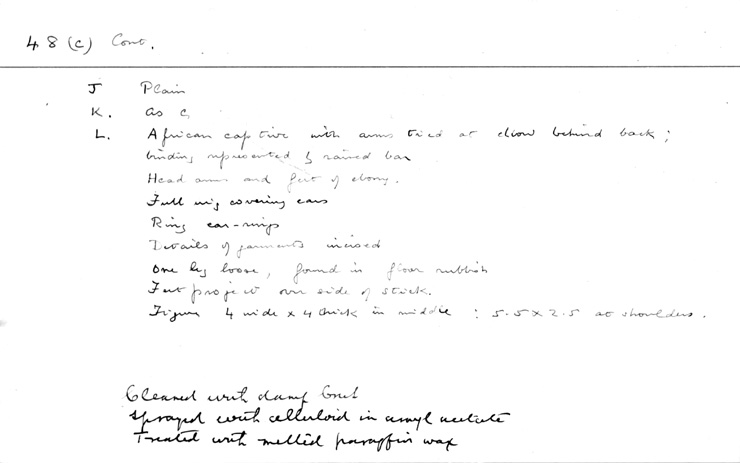 48 (c) Cont.
J Plain
K. as C
L. African captive with arms tied at elbow behind back;
binding represented by raised bar
Head arms and feet of ebony.
Full wig covering ears
Ring ear-rings
Details of garments incised
One leg loose, found in floor rubbish
Feet project over side of stick.
Figure 4 wide x 4 thick in middle : 5.5 x 2.5 at shoulders.
Cleaned with damp brush
Sprayed with celluloid in amyl acetate
Treated with melted paraffin wax